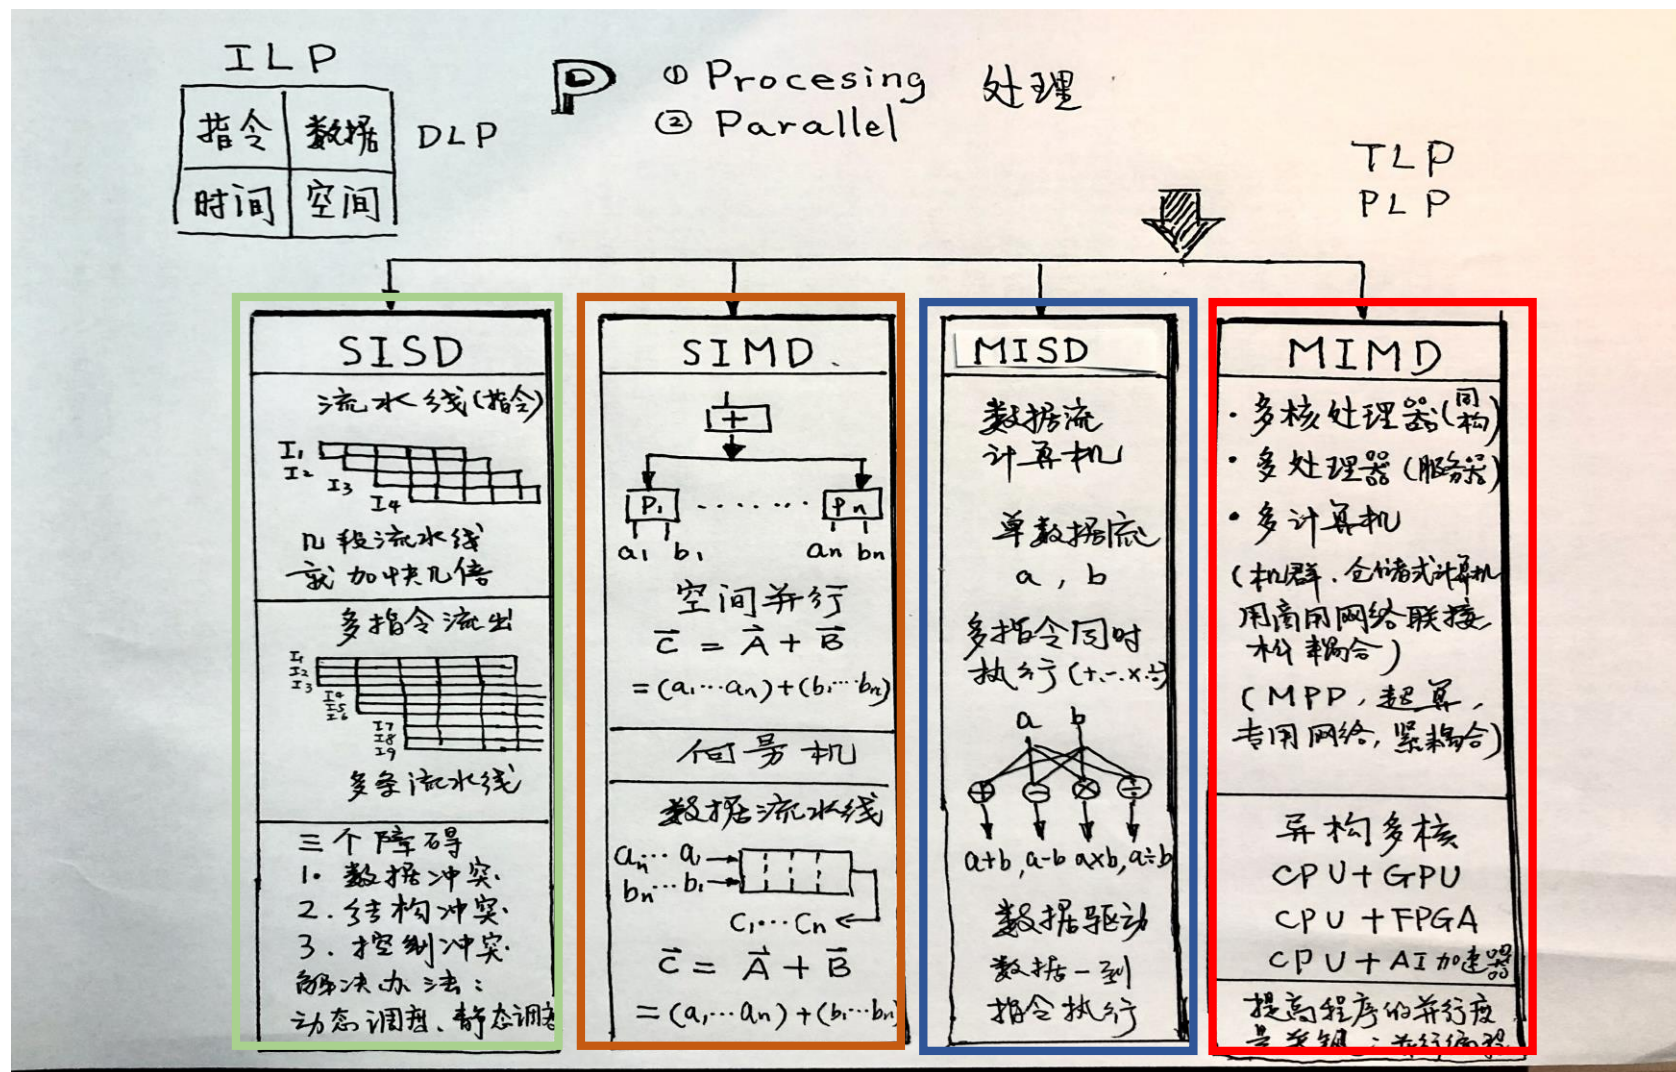 ILP
指令 数据 DLP
时间 空间
P ① Procesing 处理
② Parallel
TLP
PLP
SISD
流水线(指令)
I1
I2
I3
I4
几段流水线
就加快几倍
多指令流出
I1
I2
I3
I4
I5
I6
I7
I8
I9
多条流水线
三个障碍
1. 数据冲突
2. 结构冲突
3. 控制冲突
解决办法：
动态调度、静态调度
SIMD
+
P1 ········ Pn
a1 b1 an bn
空间并行
C = A + B
=(a1···an)+(b1···bn)
向量机
数据流水线
an··· a1
bn··· b1
C1··· Cn
C = A + B
=(a1···an)+(b1···bn)
MISD
数据流
计算机
单数据流
a , b
多指令同时
执行(+.-.×.÷)
a b
+ - × ÷
a+b, a-b, a×b, a÷b
数据驱动
数据一到
指令执行
MIMD
· 多核处理器(同构)
· 多处理器(服务器)
· 多计算机
(机群、仓储式计算机
用商用网络联接
松耦合)
(MPP, 超算,
专用网络, 紧耦合)
异构多核
CPU+GPU
CPU+FPGA
CPU+AI加速器
提高程序的并行度
是关键：并行编程